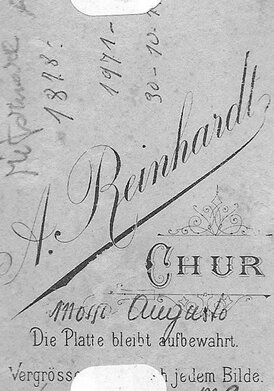 1878:
1971-
30-10-
A. Reinhardt
CHUR
Augusto
Die Platte bleibt aufbewahrt.
Vergrösse h jedem Bilde